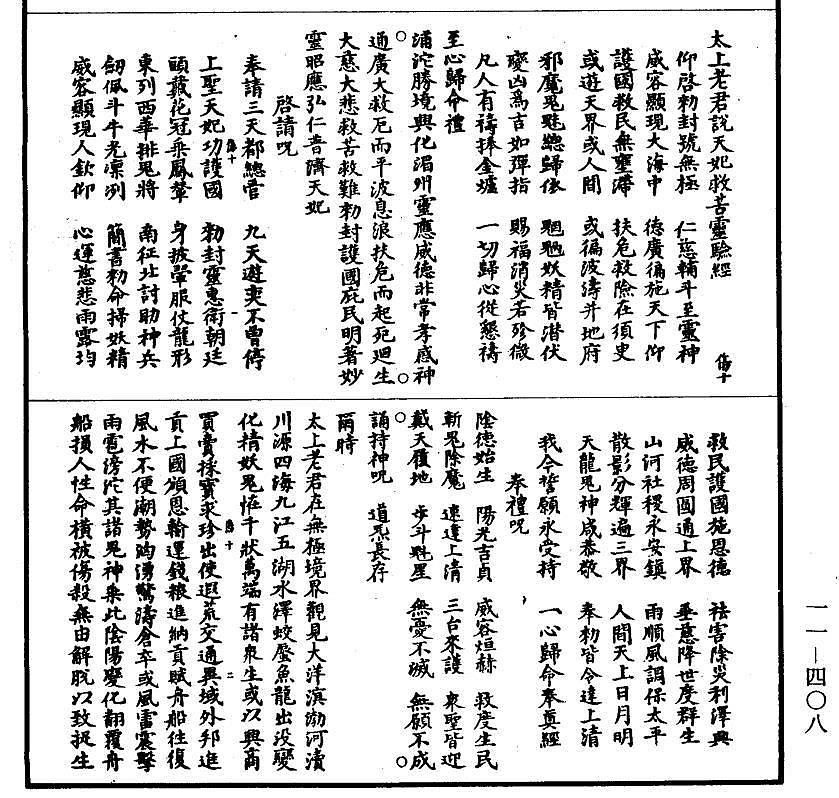 太上老君說天妃救苦靈驗經 傷十
仰啓勑封號無極 仁慈輔斗至靈神
威容顯現大海中 德廣徧施天下仰
護國救民無壅滯 扶危救險在須臾
或遊天界或人間 或徧波濤并地府
邪魔鬼魅總歸依 魍魎妖精皆潛伏
變凶為吉如彈指 賜福消災若殄微
凡人有禱捧金爐 一切歸心從懇禱
至心歸命禮
浦沱勝境興化湄州靈應威德非常孝感神
通廣大救厄而平波息浪扶危而起死迴生
大慈大悲救苦救難勑封護國庇民明著妙
靈昭應弘仁普濟天妃
啓請呪
奉請三天都總管 九天遊奕不曾停
上聖天妃功護國 勑封靈惠衛朝廷
頭戴花冠乘鳳輦 身披翬服仗龍形
東列西華排鬼將 南征北討助神兵
劒佩斗牛光凜冽 簡書勑命掃妖精
威容顯現人欽仰 心運慈悲雨露均
救民護國施恩德 祛害除災利澤興
威德周圓通上界 垂慈降世度群生
山河社稷永安鎮 雨順風調保太平
散影分輝遍三界 人間天上日月明
天龍鬼神咸恭敬 奉勑皆令達上清
我今誓願永受持 一心歸命奉真經
奉禮呪
陰德始生 陽光吉貞 威容烜赫 救度生民
斬鬼除魔 速達上清 三台來護 衆聖皆迎
戴天履地 步斗魁星 無憂不滅 無願不成
誦持神呪 道炁長存
爾時
太上老君在無極境界觀見大洋溟渤河瀆
川源四海九江五湖水澤蛟蜃魚龍出沒變
化精妖鬼怪千狀萬端有諸衆生或以興商
買賣採寶求珍出使遐荒交通異域外邦進
貢上國頒恩輸運錢粮進納貢賦舟船往復
風水不便潮勢洶湧驚濤倉卒或風雷震擊
雨雹滂沱其諸鬼神乘此陰陽變化翻覆舟
船損人性命橫被傷殺無由解脫以致捉生
傷十 一
傷十 二
一一—四〇八